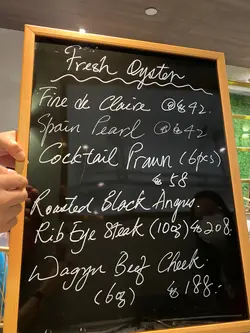 Fresh Oyster
Fine de Claire @$42
Spain Pearl @$42
Cocktail Prawn (6pcs)
$58
Roasted Black Angus.
Rib Eye Steak (10g) $208.
Wagyu Beef Cheek.
(6g) $188.-